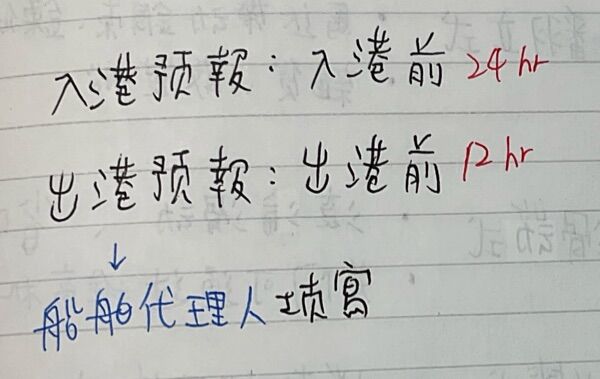 入港預報：入港前 24hr
出港預報：出港前 12hr
↓
船舶代理人填寫